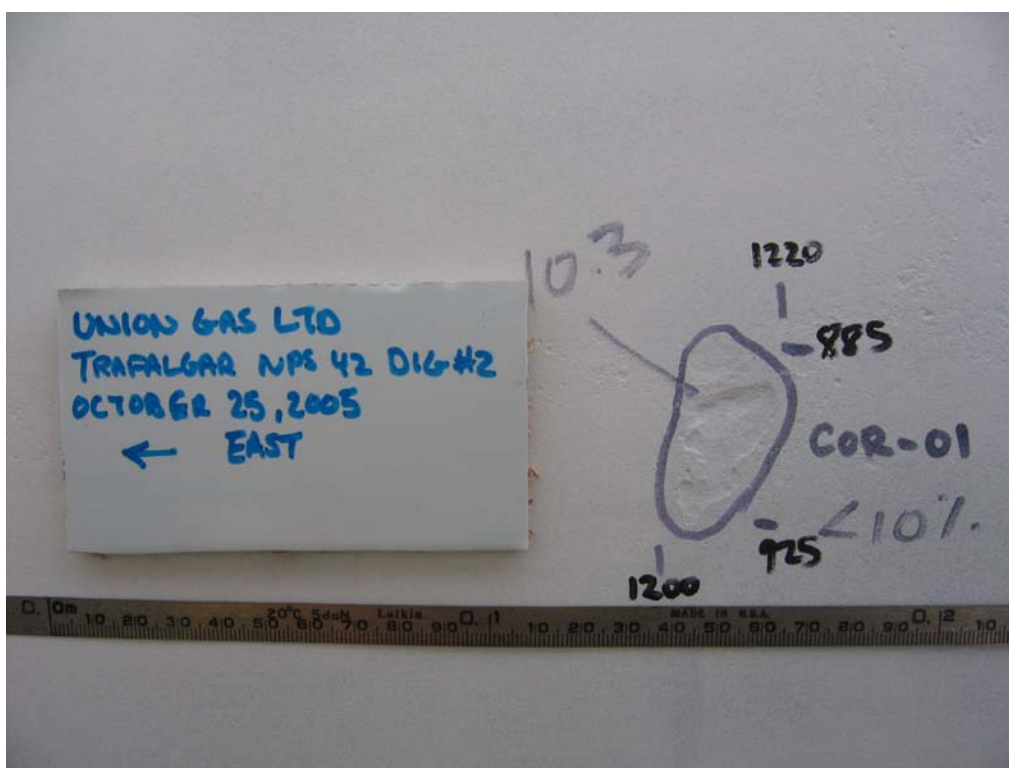 UNION GAS LTD
TRAFALGAR NPS 42 DIG #2
OCTOBER 25, 2005
← EAST
10.3
1220
885
COR-01
<10%.
925
1200
0, 0m 10 20 30 40 50 60 70 80 90 0, 1 10 20 30 40 50 60 70 80 90 0, 2 10
20°C 5daN Lufkin MADE IN U.S.A.